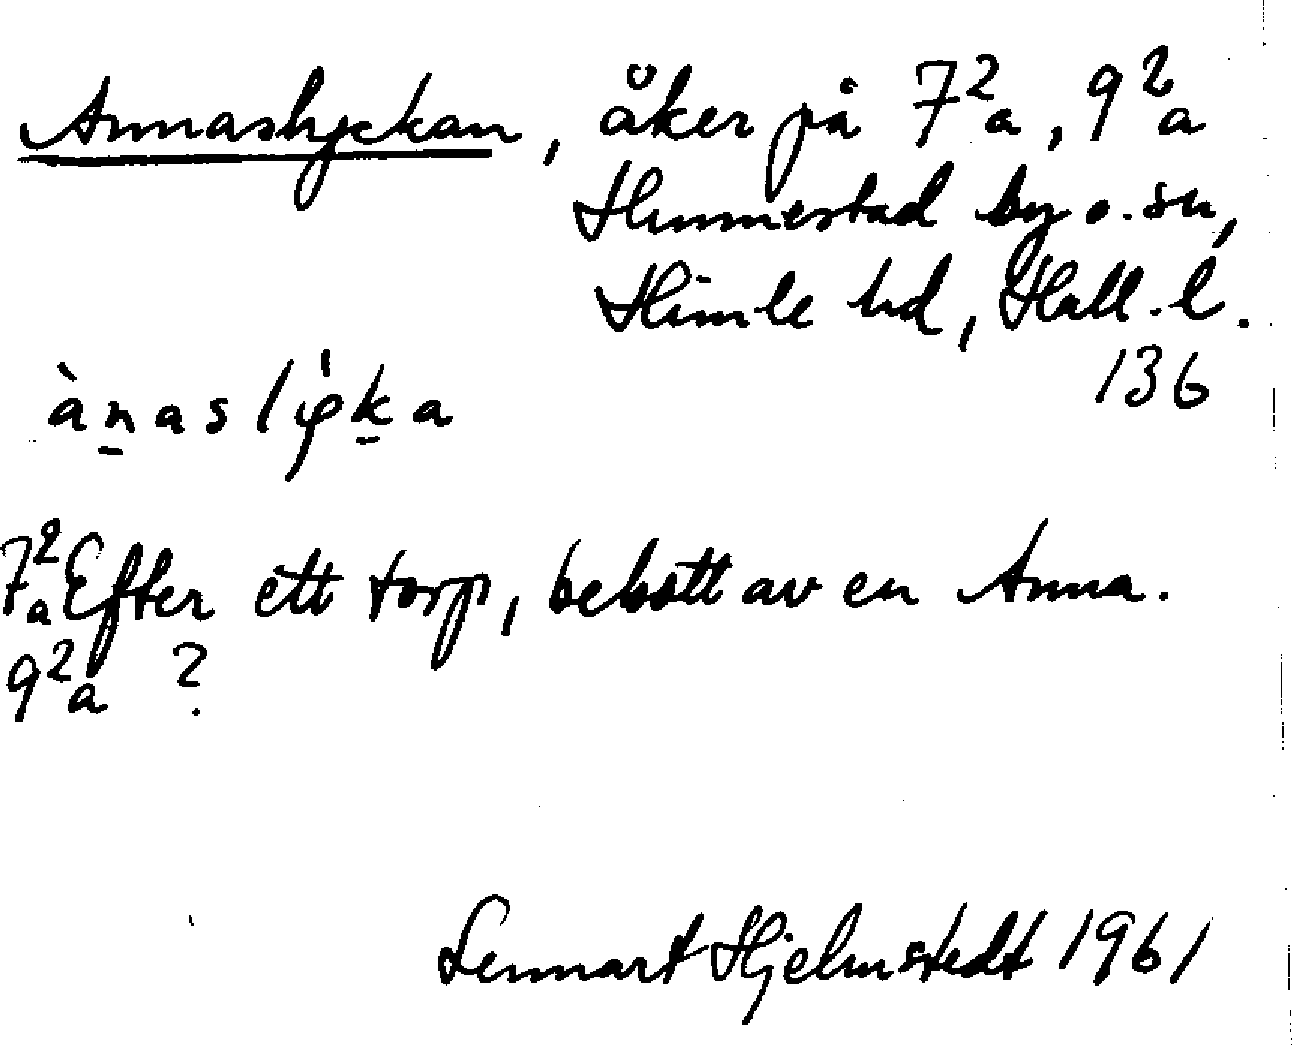 Annaslyckan, åker på 7²a, 9²a
Hunnestad by o. sn,
Himle hd, Hall. l.
136
ànaslyka
7²a Efter ett torp, bebott av en Anna.
9²a ?
Lennart Hjelmstedt 1961